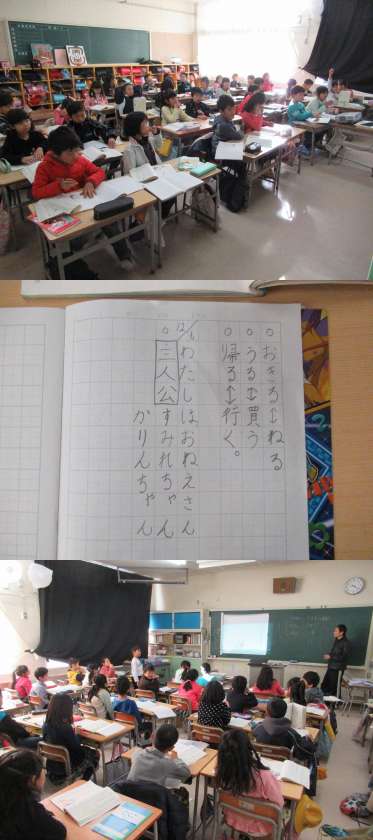 ○おきる↕ねる
○うる↕買う
○帰る↕行く。
わたしはおねえさん
○三人公すみれちゃん
かりんちゃん